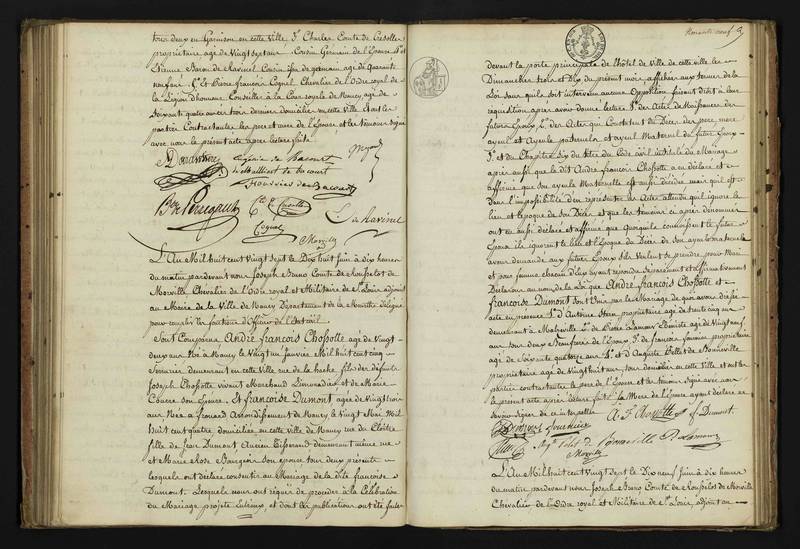 tous deux en Garnison en cette Ville, Sr. Charles Comte de
propriétaire agé de Vingt sept ans Cousin Germain de l'Epouse
Etienne Baron de Ravinel Cousin issu de germain agé de quarante
neuf ans, Sr. et Pierre françois Cognel Chevalier de l'Ordre royal de
la Légion d'honneur Conseiller à la Cour royale de Nancy agé de
Soixante quatre ans ces trois derniers domiciliés en cette Ville et ont les
parties Contractantes les pere et mere de l'Epouse et les témoins signé
avec nous le présent acte après lecture faite
de Bacourt
de Bacourt
Cognel
de Ravinel
Morville
L'An Mil huit cent Vingt sept le Dix huit Juin à dix heures
du matin pardevant nous Joseph Bruno Comte de
Morville Chevalier de l'Ordre royal et Militaire de St. Louis adjoint
au Maire de la Ville de Nancy Département de la Meurthe délégué
pour remplir les fonctions d'Officier de l'Etat civil
Sont Comparus André françois Chossotte agé de Vingt-
deux ans Né à Nancy le Vingt un Janvier Mil huit cent cinq
Serrurier demeurant en cette Ville rue de la hache, fils des défunts
Joseph Chossotte vivant Marchand Limonadier et de Marie
son Epouse. Et françoise Dumont agée de Vingt trois
ans Née à frouard Arrondissement de Nancy le Vingt Mai Mil
huit cent quatre domiciliée en cette ville de Nancy rue du Cloître
fille de Jean Dumont Ancien Tisserand demeurant même rue
et Marie Rose son épouse tous deux présents
lesquels ont déclaré consentir au Mariage de la dite françoise
Dumont. Lesquels nous ont requis de procéder à la Célébration
du Mariage projetté entr'eux, et dont les publications ont été faites
devant la porte principale de l'hôtel de Ville de cette ville les
Dimanches trois et Dix du présent mois affichées aux termes de la
Loi sans qu'il soit intervenu aucune Opposition faisant droit à leur
réquisition après avoir donné lecture 1°. des Actes de Naissances des
futurs Epoux 2°. des Actes qui Constatent les Décès des pere, mere
ayeul et Ayeule paternels et ayeul Maternel du futur Epoux
3°. et du Chapitre Six du titre du Code civil intitulé du Mariage
après aussi que le dit André françois Chossotte a eu déclaré et
affirmé que son ayeule Maternelle est aussi décédée mais qu'il est
Dans l'impossibilité d'en représenter les Actes attendu qu'il ignore le
lieu et l'époque de son Décès et que les témoins ci après dénommés
ont eu aussi déclaré et affirmé que quoiqu'ils connoissent le futur
Epoux ils ignorent le lieu et l'Epoque du Décès de son ayeule maternelle
avons demandé aux futurs Epoux s'ils Veulent se prendre pour Mari
et pour femme chacun d'eux ayant répondu séparément et affirmativement
Déclarons au nom de la Loi que André françois Chossotte et
françoise Dumont sont Unis par le Mariage de quoi avons dressé
acte en présence Sr. de Antoine propriétaire agé de trente cinq ans
demeurant à Malzéville de Pierre Lamour agé de Vingt neuf
ans tous deux Beaufreres de l'Epoux Sr. de françois propriétaire
agé de Soixante quatorze ans Sr. et d'Auguste Collet de Bonneville
propriétaire agé de Vingt huit ans, tous domiciliés en cette Ville et ont les
parties contractantes le pere de l'Epouse et les témoins signé avec nous
le présent acte après lecture faite la Mere de l'Epouse ayant déclaré ne
savoir signer de ce interpellée
A. F. Chossotte f Dumont
P. Lamour
Morville
L'An Mil huit cent Vingt sept le Dix Neuf Juin à dix heures
du matin pardevant nous Joseph Bruno Comte de Morville
Chevalier de l'Ordre royal et Militaire de St. Louis, adjoint au